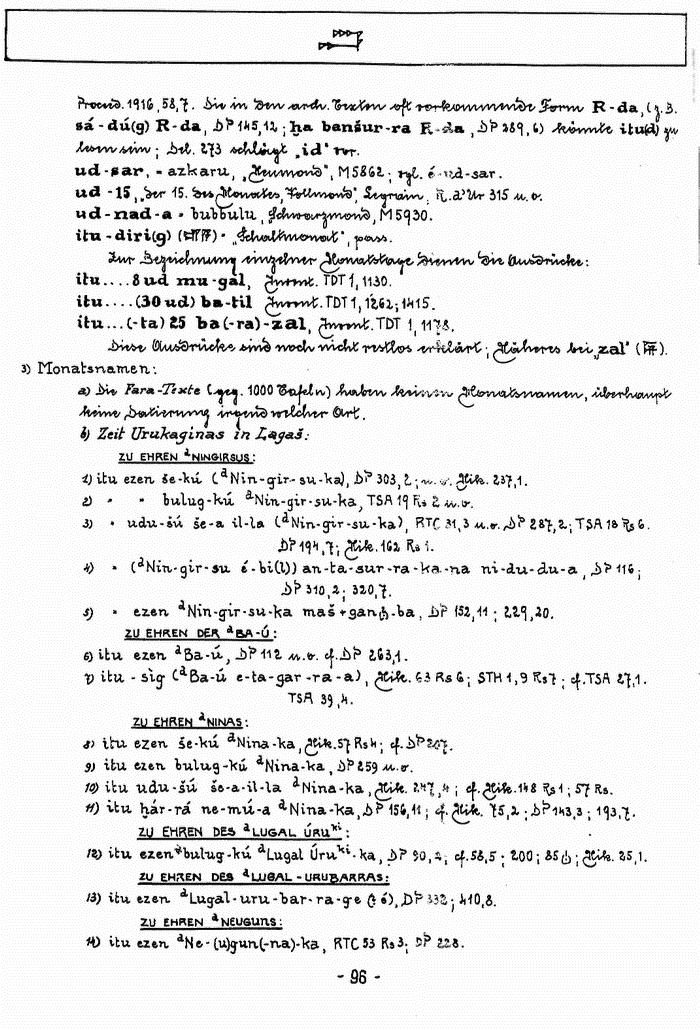 Proceed. 1916, 58,7. Die in den arch. Texten oft vorkommende Form R-da, (z. B.
sá-dú(g) R-da, DP 145,12; ḫa banšur-ra R-da, DP 289, 6) könnte itu(d) zu
lesen sein; Del. 273 schlägt „id" vor.
ud-sar, = azkaru, „Neumond", M5862; vgl. é-ud-sar.
ud-15, „der 15. des Monates, Vollmond", Legrain, R. d'Ur 315 u. o.
ud-nad-a = bubbulu, Schwarzmond, M5930.
itu-diri(g) = „Schaltmonat", pass.
Zur Bezeichnung einzelner Monatstage dienen die Ausdrücke:
itu....8 ud mu-gál, Invent. TDT 1, 1130.
itu....(30 ud) ba-til Invent. TDT 1, 1262; 1415.
itu...(-ta) 25 ba(-ra)-zal, Invent. TDT 1, 1178.
Diese Ausdrücke sind noch nicht restlos erklärt; Näheres bei „zal"
3) Monatsnamen:
a) Die Fara-Texte (geg. 1000 Tafeln) haben keinen Monatsnamen, überhaupt
keine Datierung irgend welcher Art.
b) Zeit Urukaginas in Lagaš:
ZU EHREN ᵈNINGIRSUS:
1) itu ezen še-kú (ᵈNin-gir-su-ka), DP 303, 2; u. o. Nik. 237,1.
2) " " bulug-kú ᵈNin-gir-su-ka, TSA 19 Rs 2 u. o.
3) " udu-šú še-a il-la (ᵈNin-gir-su-ka), RTC 31,3 u. o. DP 287, 2; TSA 18 Rs 6.
DP 194,7; Nik. 162 Rs 1.
4) " (ᵈNin-gir-su é-bi(l)) an-ta-sur-ra-ka-na ni-du-du-a, DP 116;
DP 310, 2; 320,7.
5) " ezen ᵈNin-gir-su-ka maš+gan-ba, DP 152, 11; 229, 20.
ZU EHREN DER ᵈBA-Ú:
6) itu ezen ᵈBa-ú, DP 112 u. o. cf. DP 263,1.
7) itu-sìg (ᵈBa-ú e-ta-gar-ra-a), Nik. 63 Rs 6; STH 1, 9 Rs 7; cf. TSA 27,1.
TSA 39, 4.
ZU EHREN ᵈNINAS:
8) itu ezen še-kú ᵈNina-ka, Nik. 57 Rs 4; cf. DP
9) itu ezen bulug-kú ᵈNina-ka, DP 259 u. o.
10) itu udu-šú še-a-il-la ᵈNina-ka, Nik. 247, 4; cf. Nik. 148 Rs 1; 57 Rs.
11) itu ḫár-rá ne-mú-a ᵈNina-ka, DP 156, 11; cf. Nik. 75, 2; DP 143,3; 193,7.
ZU EHREN DES ᵈLUGAL ÚRUᵏⁱ:
12) itu ezen bulug-kú ᵈLugal Úruᵏⁱ-ka, DP 90, 2; cf. 58,5; 200; 85; Nik. 25,1.
ZU EHREN DES ᵈLUGAL-URUBARRAS:
13) itu ezen ᵈLugal-uru-bar-ra-ge DP 332; 410,8.
ZU EHREN ᵈNEUGUNS:
14) itu ezen ᵈNe-(u)gun(-na)-ka, RTC 53 Rs 3; DP 228.
- 96 -